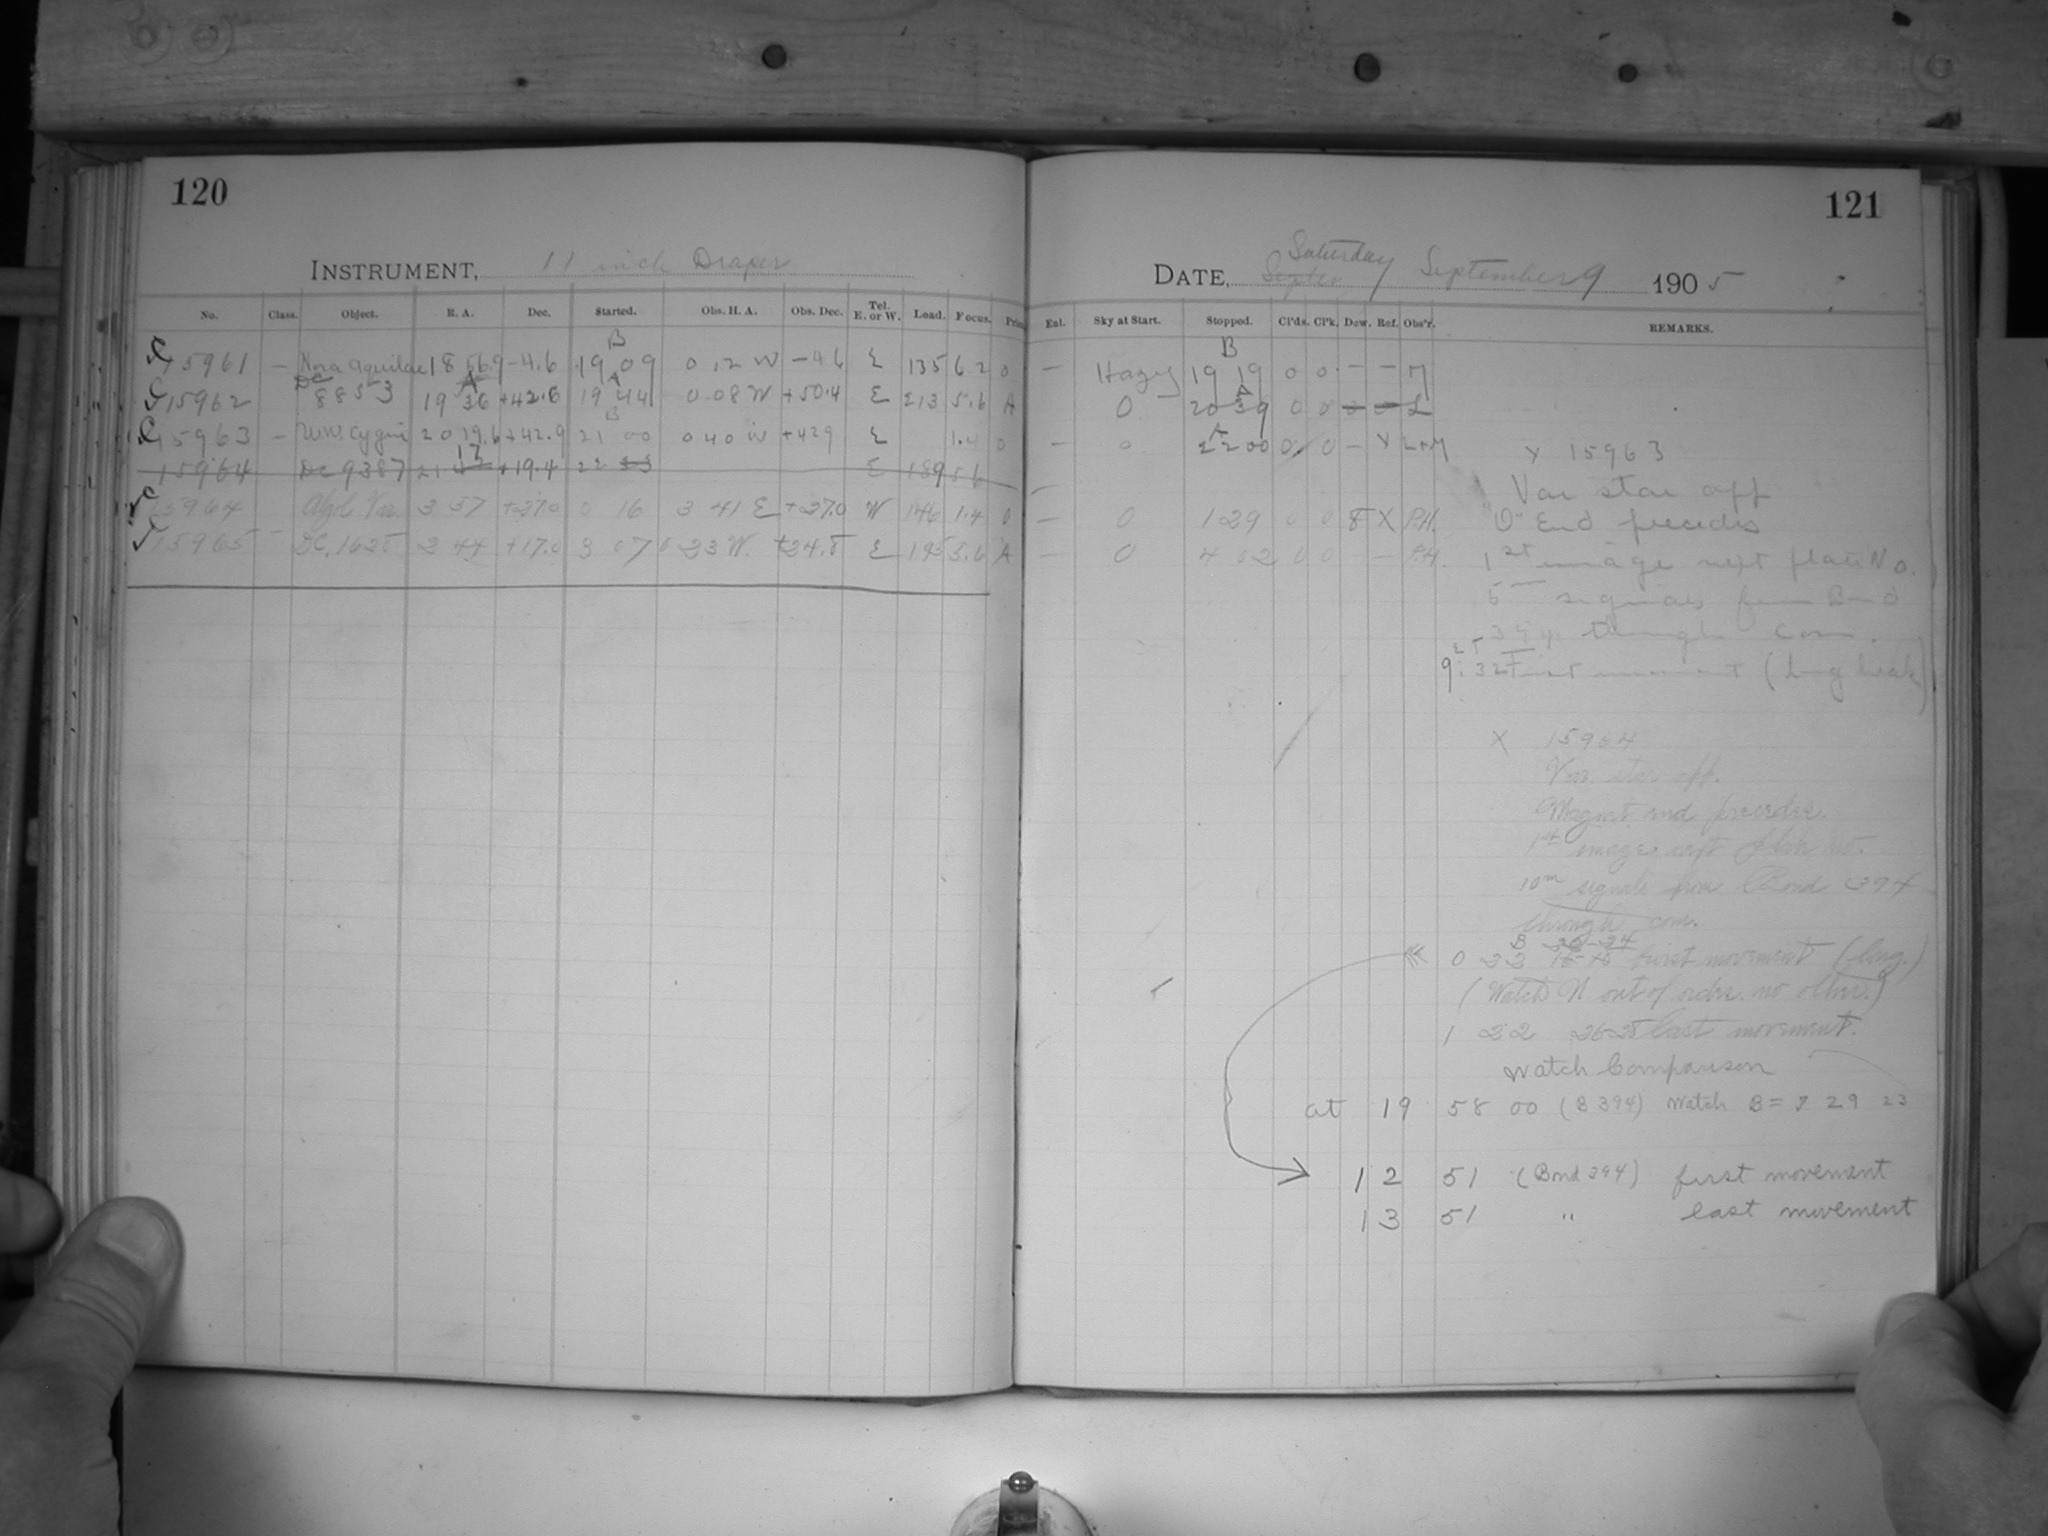 120
INSTRUMENT, 11 inch Draper
No. Class. Object. R. A. Dec. Started. Obs. H. A. Obs. Dec. Tel. E. or W. Load. Focus.
B
15961 — Nova Aquilae 18 56.9 -4.6 19 09 0 12 W -4 6 E 135 6.2 0
A A
15962 DC 8853 19 36 +42.6 19 44 0 08 W +50.4 E 213 5.6 A
B
15963 — W.W. Cygni 20 19.6 +42.9 21 00 0 40 W +429 E 1.4 0
15964 DC 9387 21 17 +19.4 22 E 189 5.6
15964 Algol Var. 3 37 +37.0 0 16 3 41 E +37.0 W 146 1.4 0
15965 — DC, 1625 2 44 +17.0 3 07 0 23 W. +24.5 E 195 5.6 A
121
Saturday
DATE, September 9 1905
Enl. Sky at Start. Stopped. Cl'ds. Cl'k. Dew. Ref. Obs'r. REMARKS.
B
— Hazy 19 19 0 0 — — M
A
0 20 39 0 0 L
A
— 0 22 00 0 0 — X L+M
— 0 1 29 0 0 8 X P.H.
— 0 4 02 0 0 — P.H.
X 15963
Var star opp
"O" End precedes
1st image next plate No.
5 signals from Bond
394 through Com.
9:32 First movement (long break)
X 15964
Var. star opp.
Magnet end precedes.
1st image next plate no.
10m signals from Bond 394
through com.
B
0 22 first movement (long.)
(Watch N. out of order. no other.)
1 32 26-28 last movement.
Watch Comparison
at 19 58 00 (B 394) Watch B = 7 29 23
12 51 (Bond 394) first movement
13 51 " last movement